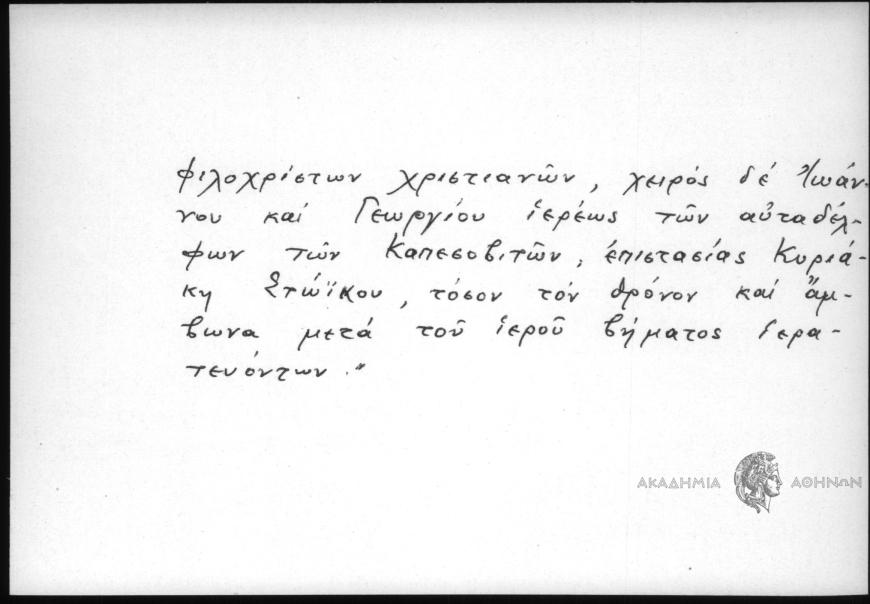 φιλοχρίστων χριστιανῶν, χειρός δέ Ἰωάν-
νου καί Γεωργίου ἱερέως τῶν αὐταδέλ-
φων τῶν Καπεσοβιτῶν, ἐπιστασίας Κυριά-
κη Στώϊκου, τόσον τόν θρόνον καί ἄμ-
βωνα μετά τοῦ ἱεροῦ βήματος ἱερα-
τευόντων."
ΑΚΑΔΗΜΙΑ ΑΘΗΝΩΝ